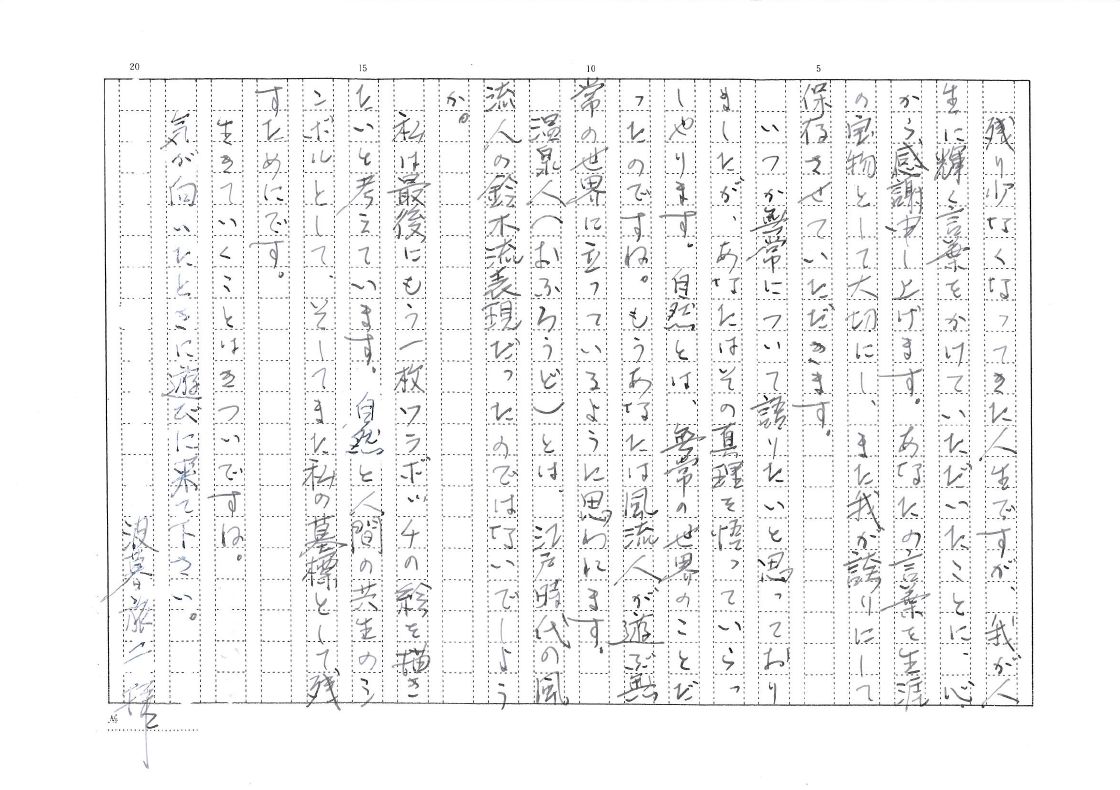 残り少なくなってきた人生ですが、我が人
生に輝く言葉をかけていただいたことに、心
から感謝申し上げます。あなたの言葉を生涯
の宝物として大切にし、また我が誇りにして
保存させていただきます。
いつか無常について語りたいと思っており
ましたが、あなたはその真理を悟っていらっ
しやります。自然とは、無常の世界のことだ
ったのですね。もうあなたは風流人が遊ぶ無
常の世界に立っているように思われます。
温泉人(おふろうど)とは、江戸時代の風
流人の鈴木流表現だったのではないでしょう
か。
私は最後にもう一枚ワラボッチの絵を描き
たいと考えています。自然と人間の共生のシ
ンボルとして、そしてまた私の墓標として残
すためにです。
生きていくことはきついですね。
気が向いたときに遊びに来て下さい。
5
10
15
20
№